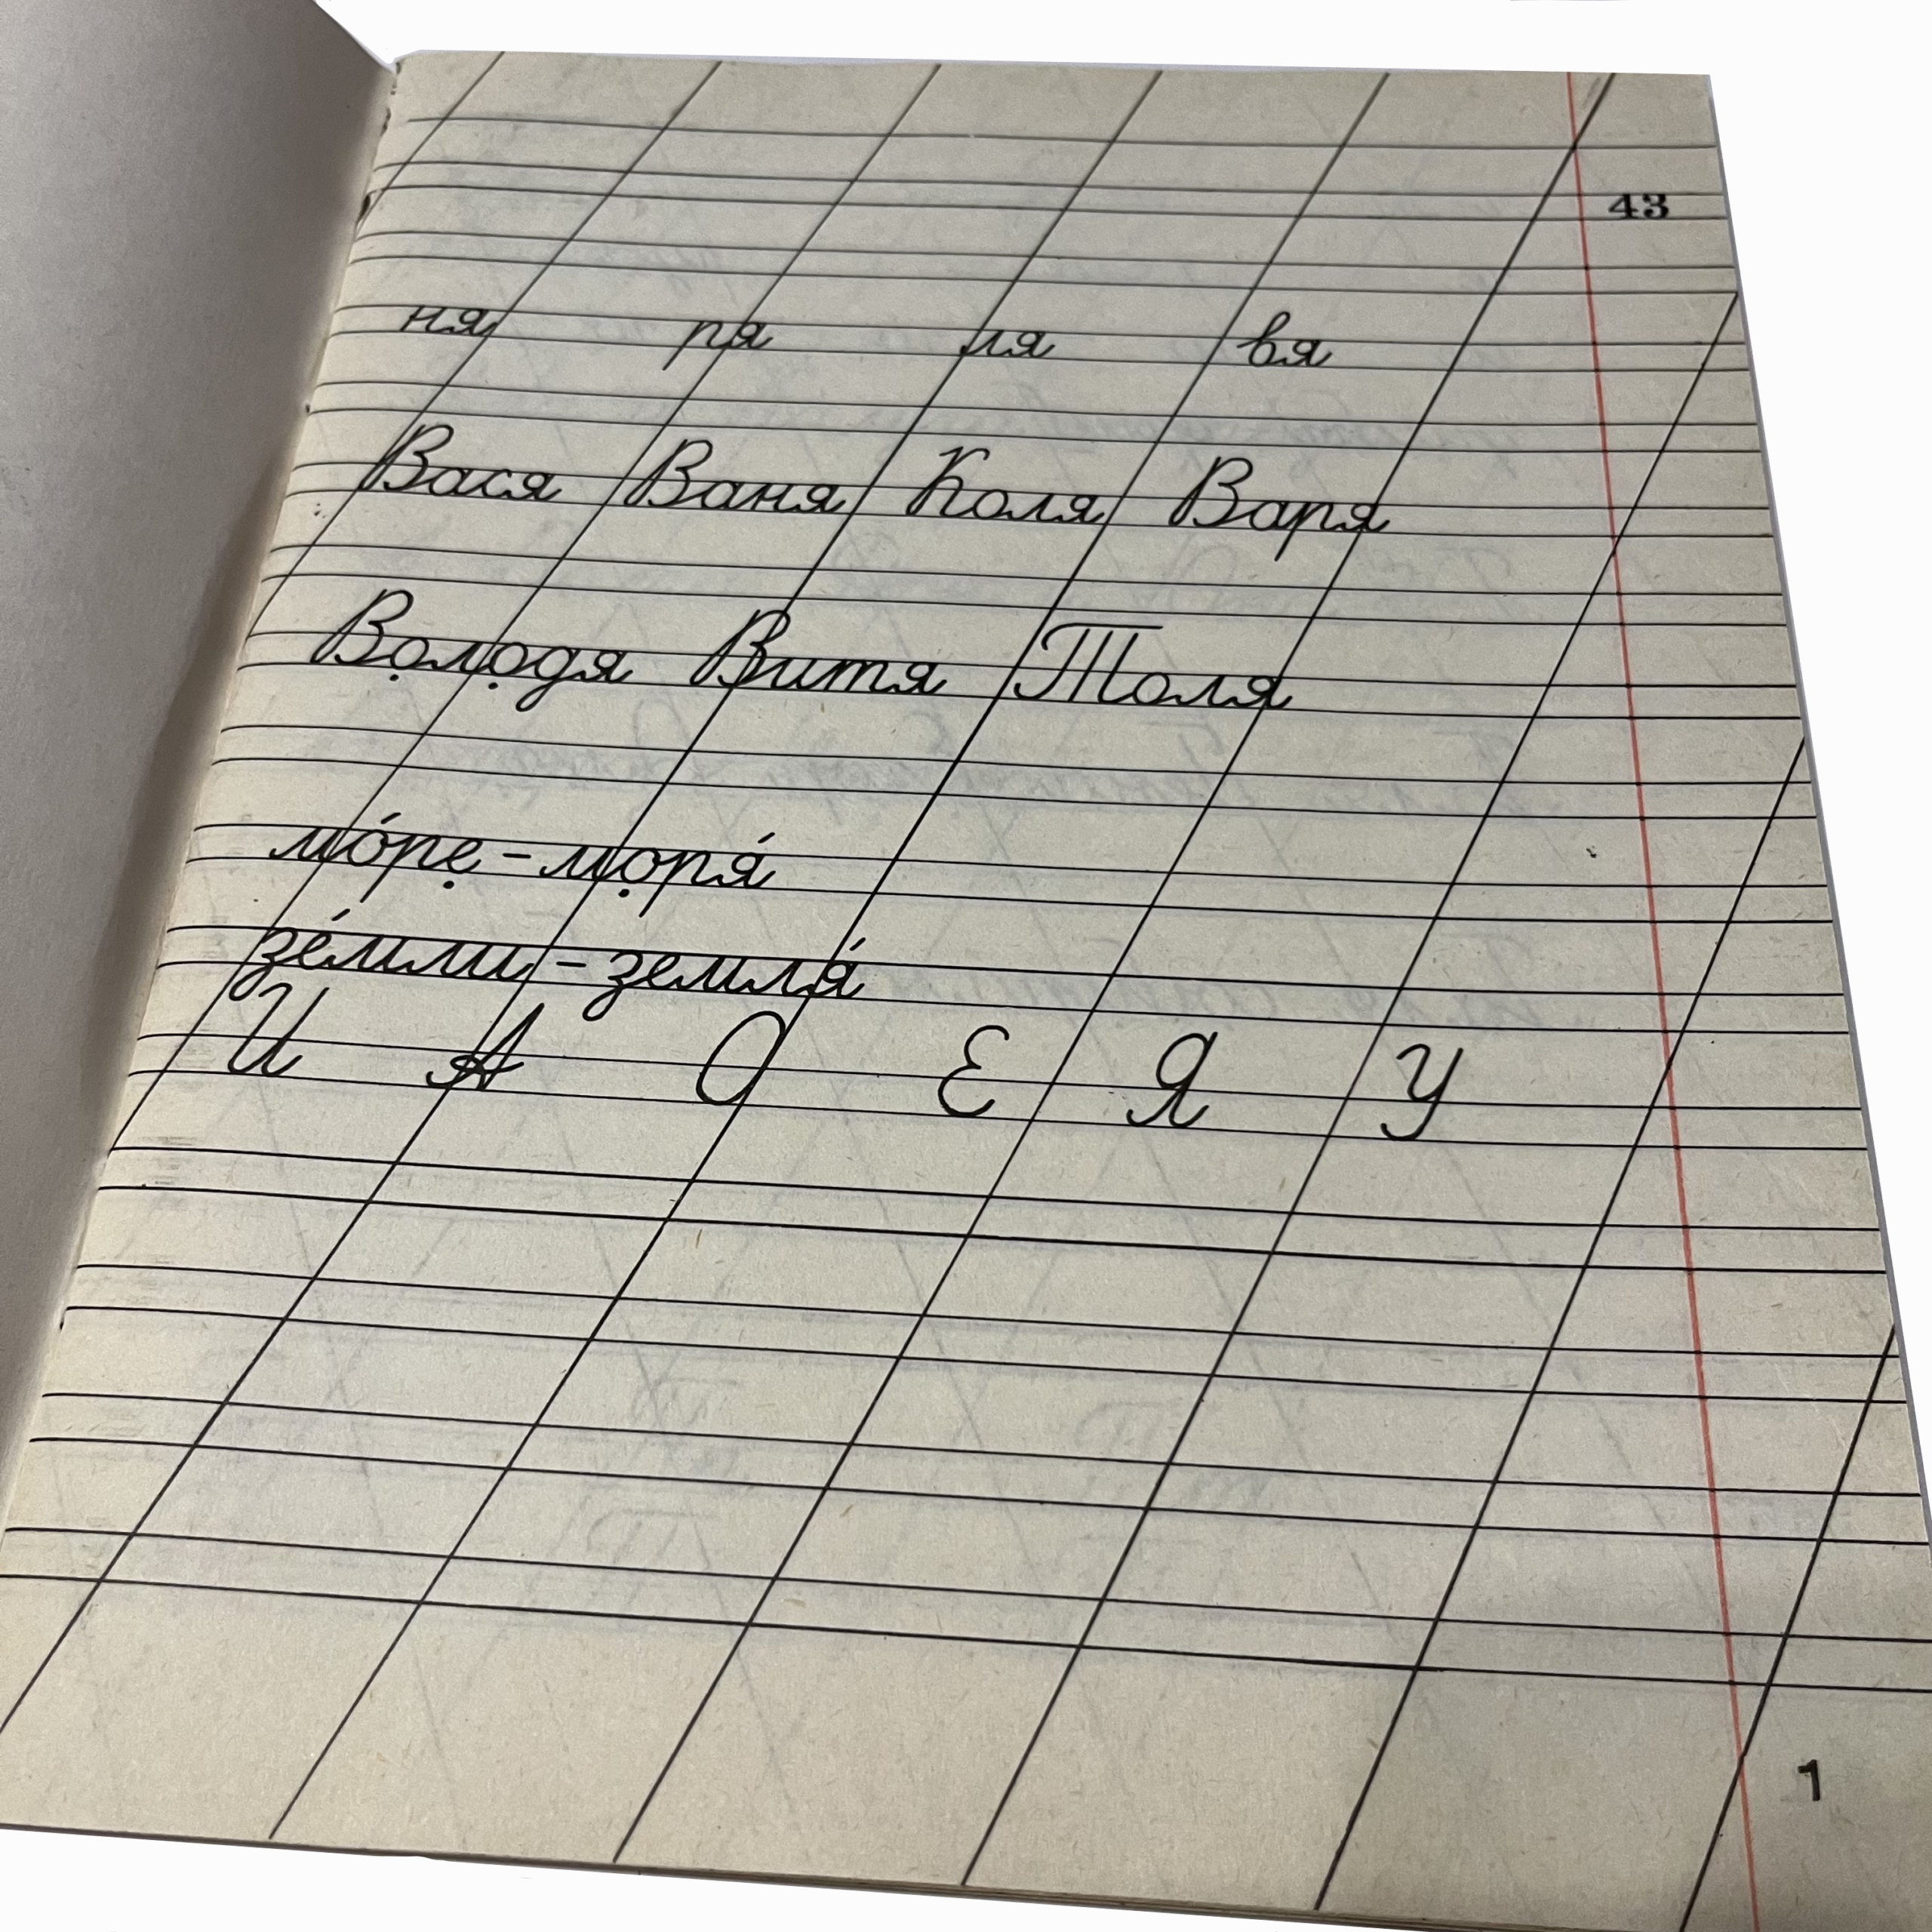 43
ня ря ля вя
Вася Ваня Коля Варя
Володя Витя Толя
мо́ре - моря́
зе́мли - земля́
И А О Е Я У
1